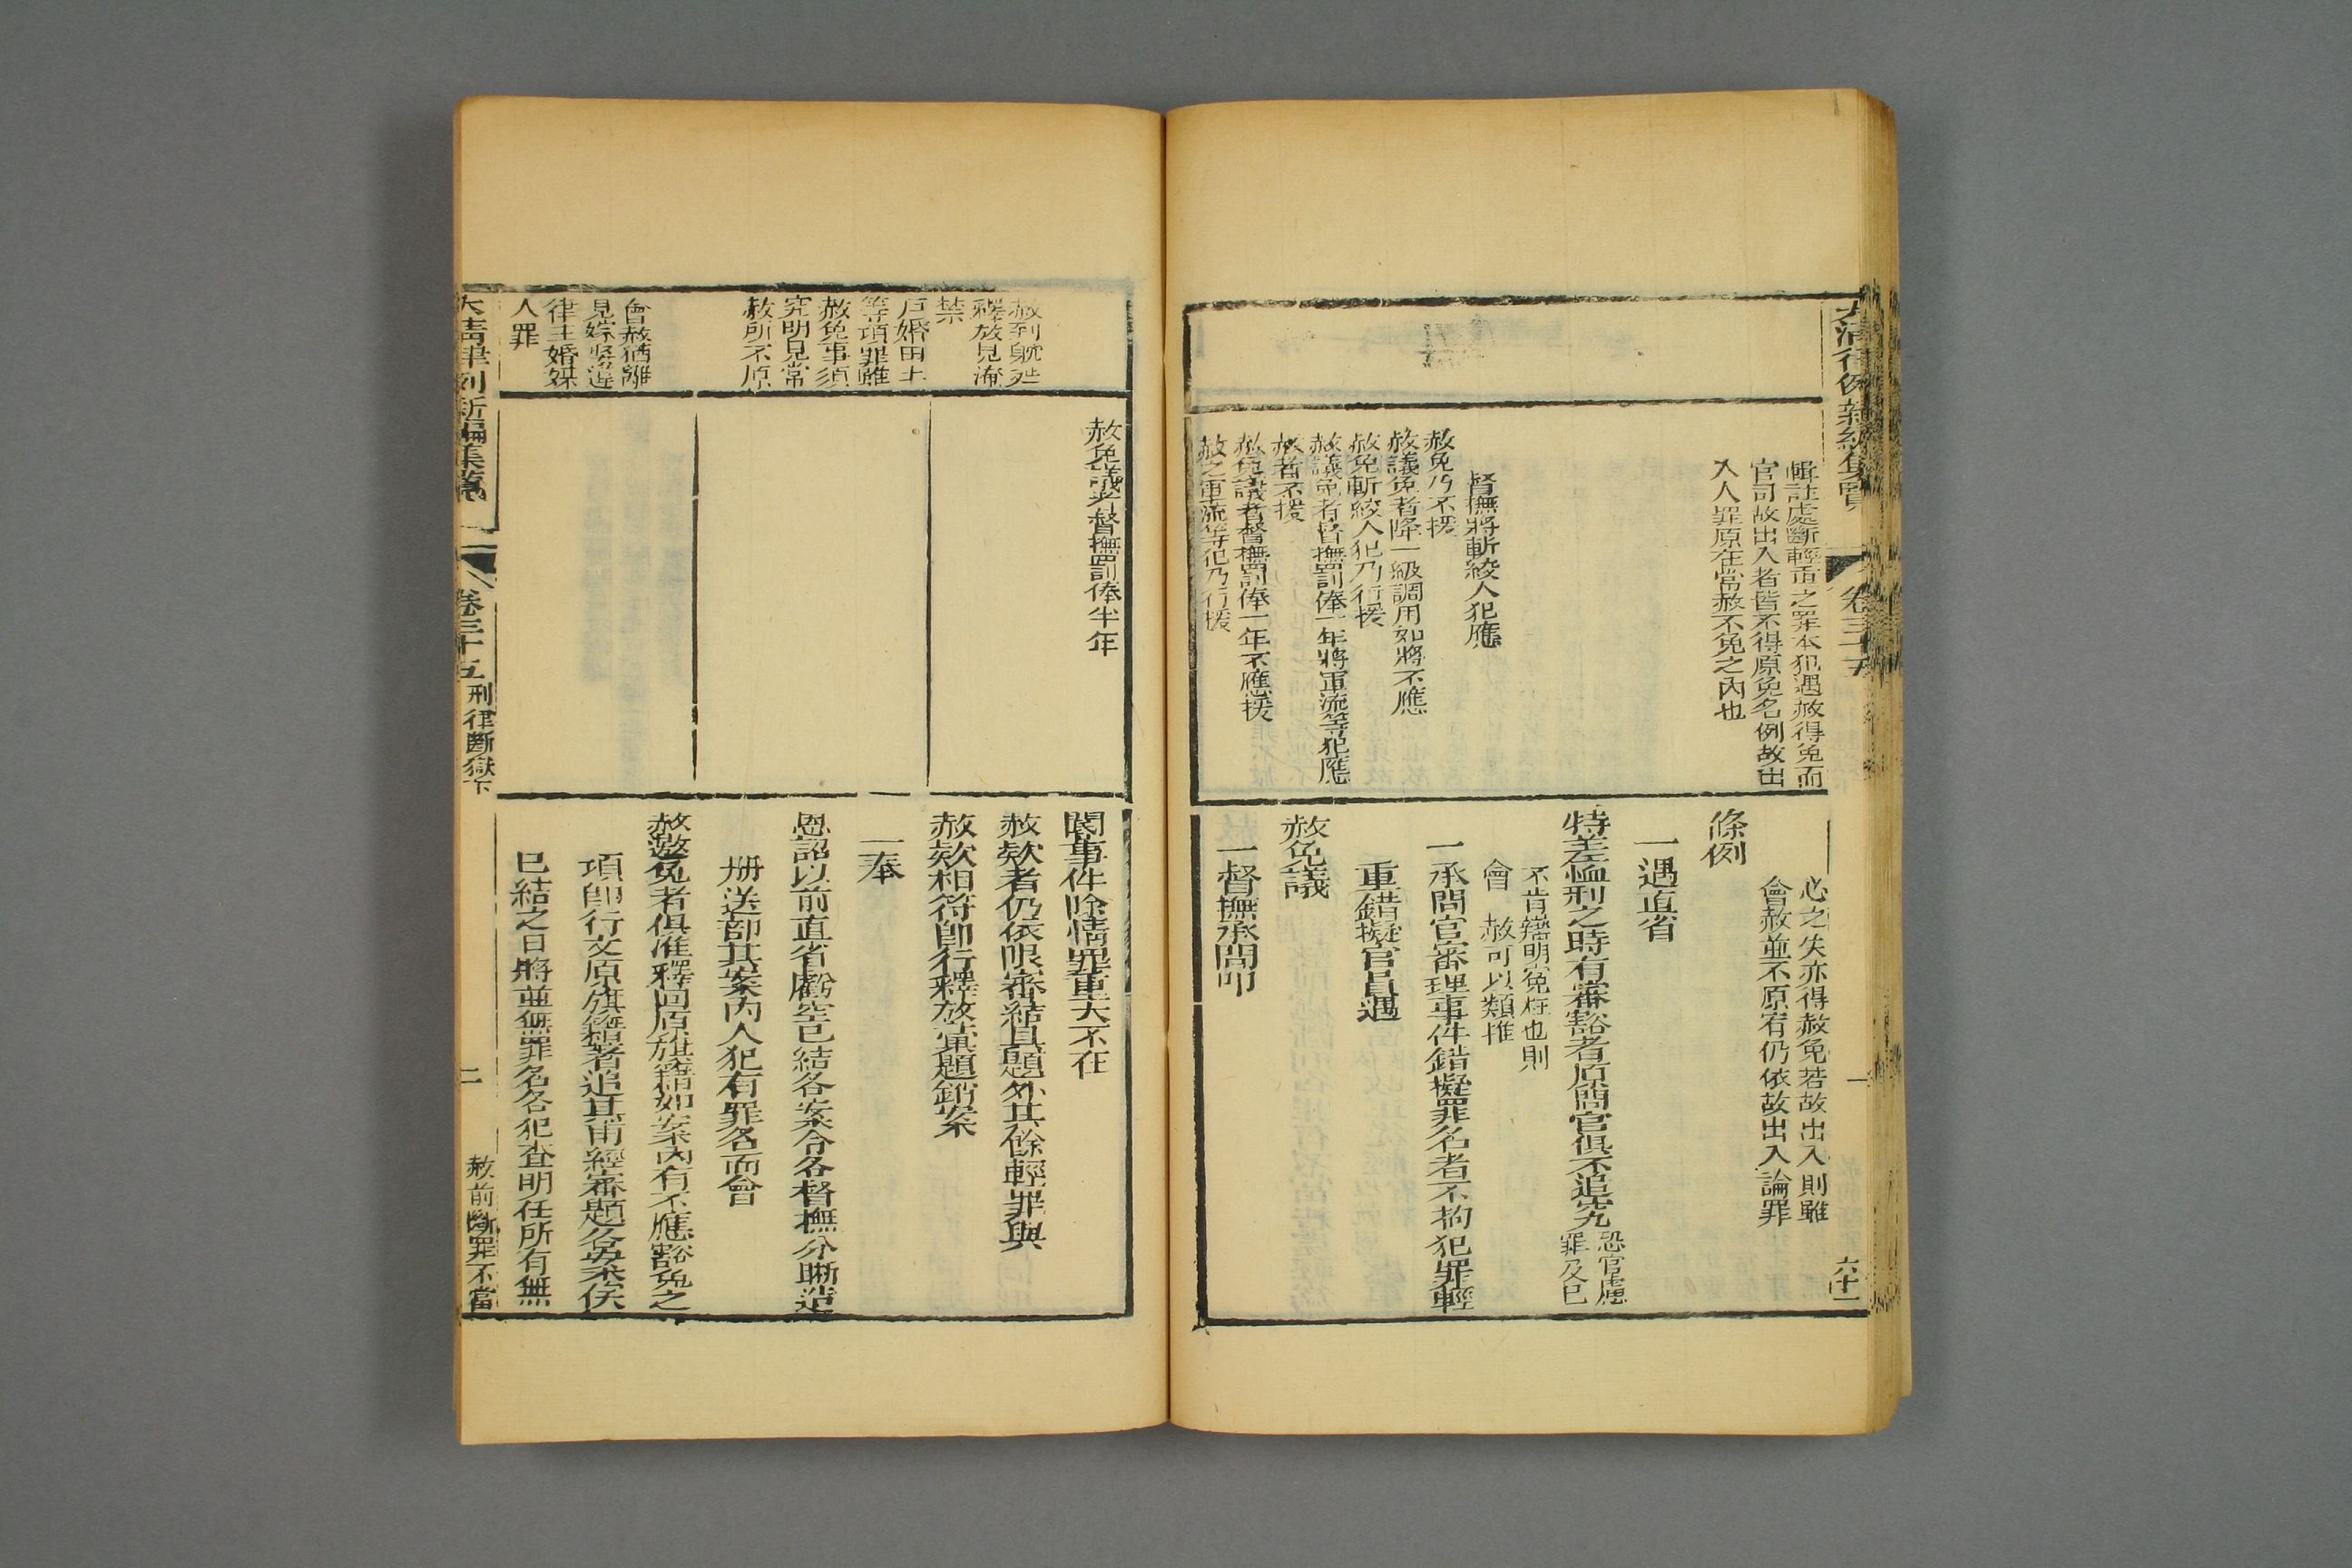 大清律例新編集覽
卷三十五
一
六十一
輯註處斷輕重之罪本犯遇赦得免而
官司故出入者皆不得原免名例故出
入人罪原在常赦不免之內也
督撫將斬絞人犯應
赦免乃不援
赦議免者降一級調用如將不應
赦免斬絞人犯乃行援
赦議免者督撫罰俸一年將軍流等犯應
赦者不援
赦免議者督撫罰俸一年不應援
赦之軍流等犯乃行援
心之失亦得赦免若故出入則雖
會赦並不原宥仍依故出入論罪
條例
一遇直省
特差恤刑之時有審豁者原問官俱不追究恐官慮
罪及已
不肯辯明寃枉也則
會 赦可以類推
一承問官審理事件錯擬罪名者不拘犯罪輕
重錯擬官員遇
赦免議
一督撫承問叩
赦到躭延
釋放見淹
禁
戶婚田土
等項罪雖
赦免事須
究明見常
赦所不原
會赦猶離
見嫁娶違
律主婚媒
人罪
赦免議者督撫罰俸半年
閽事件除情罪重大不在
赦欵者仍依限審結具題外其餘輕罪與
赦欵相符卽行釋放彙題銷案
一奉
恩詔以前直省虧空已結各案令各督撫分晰造
册送部其案內人犯有罪名而會
赦邀免者俱准釋回原旗籍如案內有不應豁免之
項卽行文原旗籍著追其甫經審題各案俟
已結之日將並無罪名各犯查明任所有無
大清律例新編集覽
卷三十五
刑律斷獄下
二
赦前斷罪不當